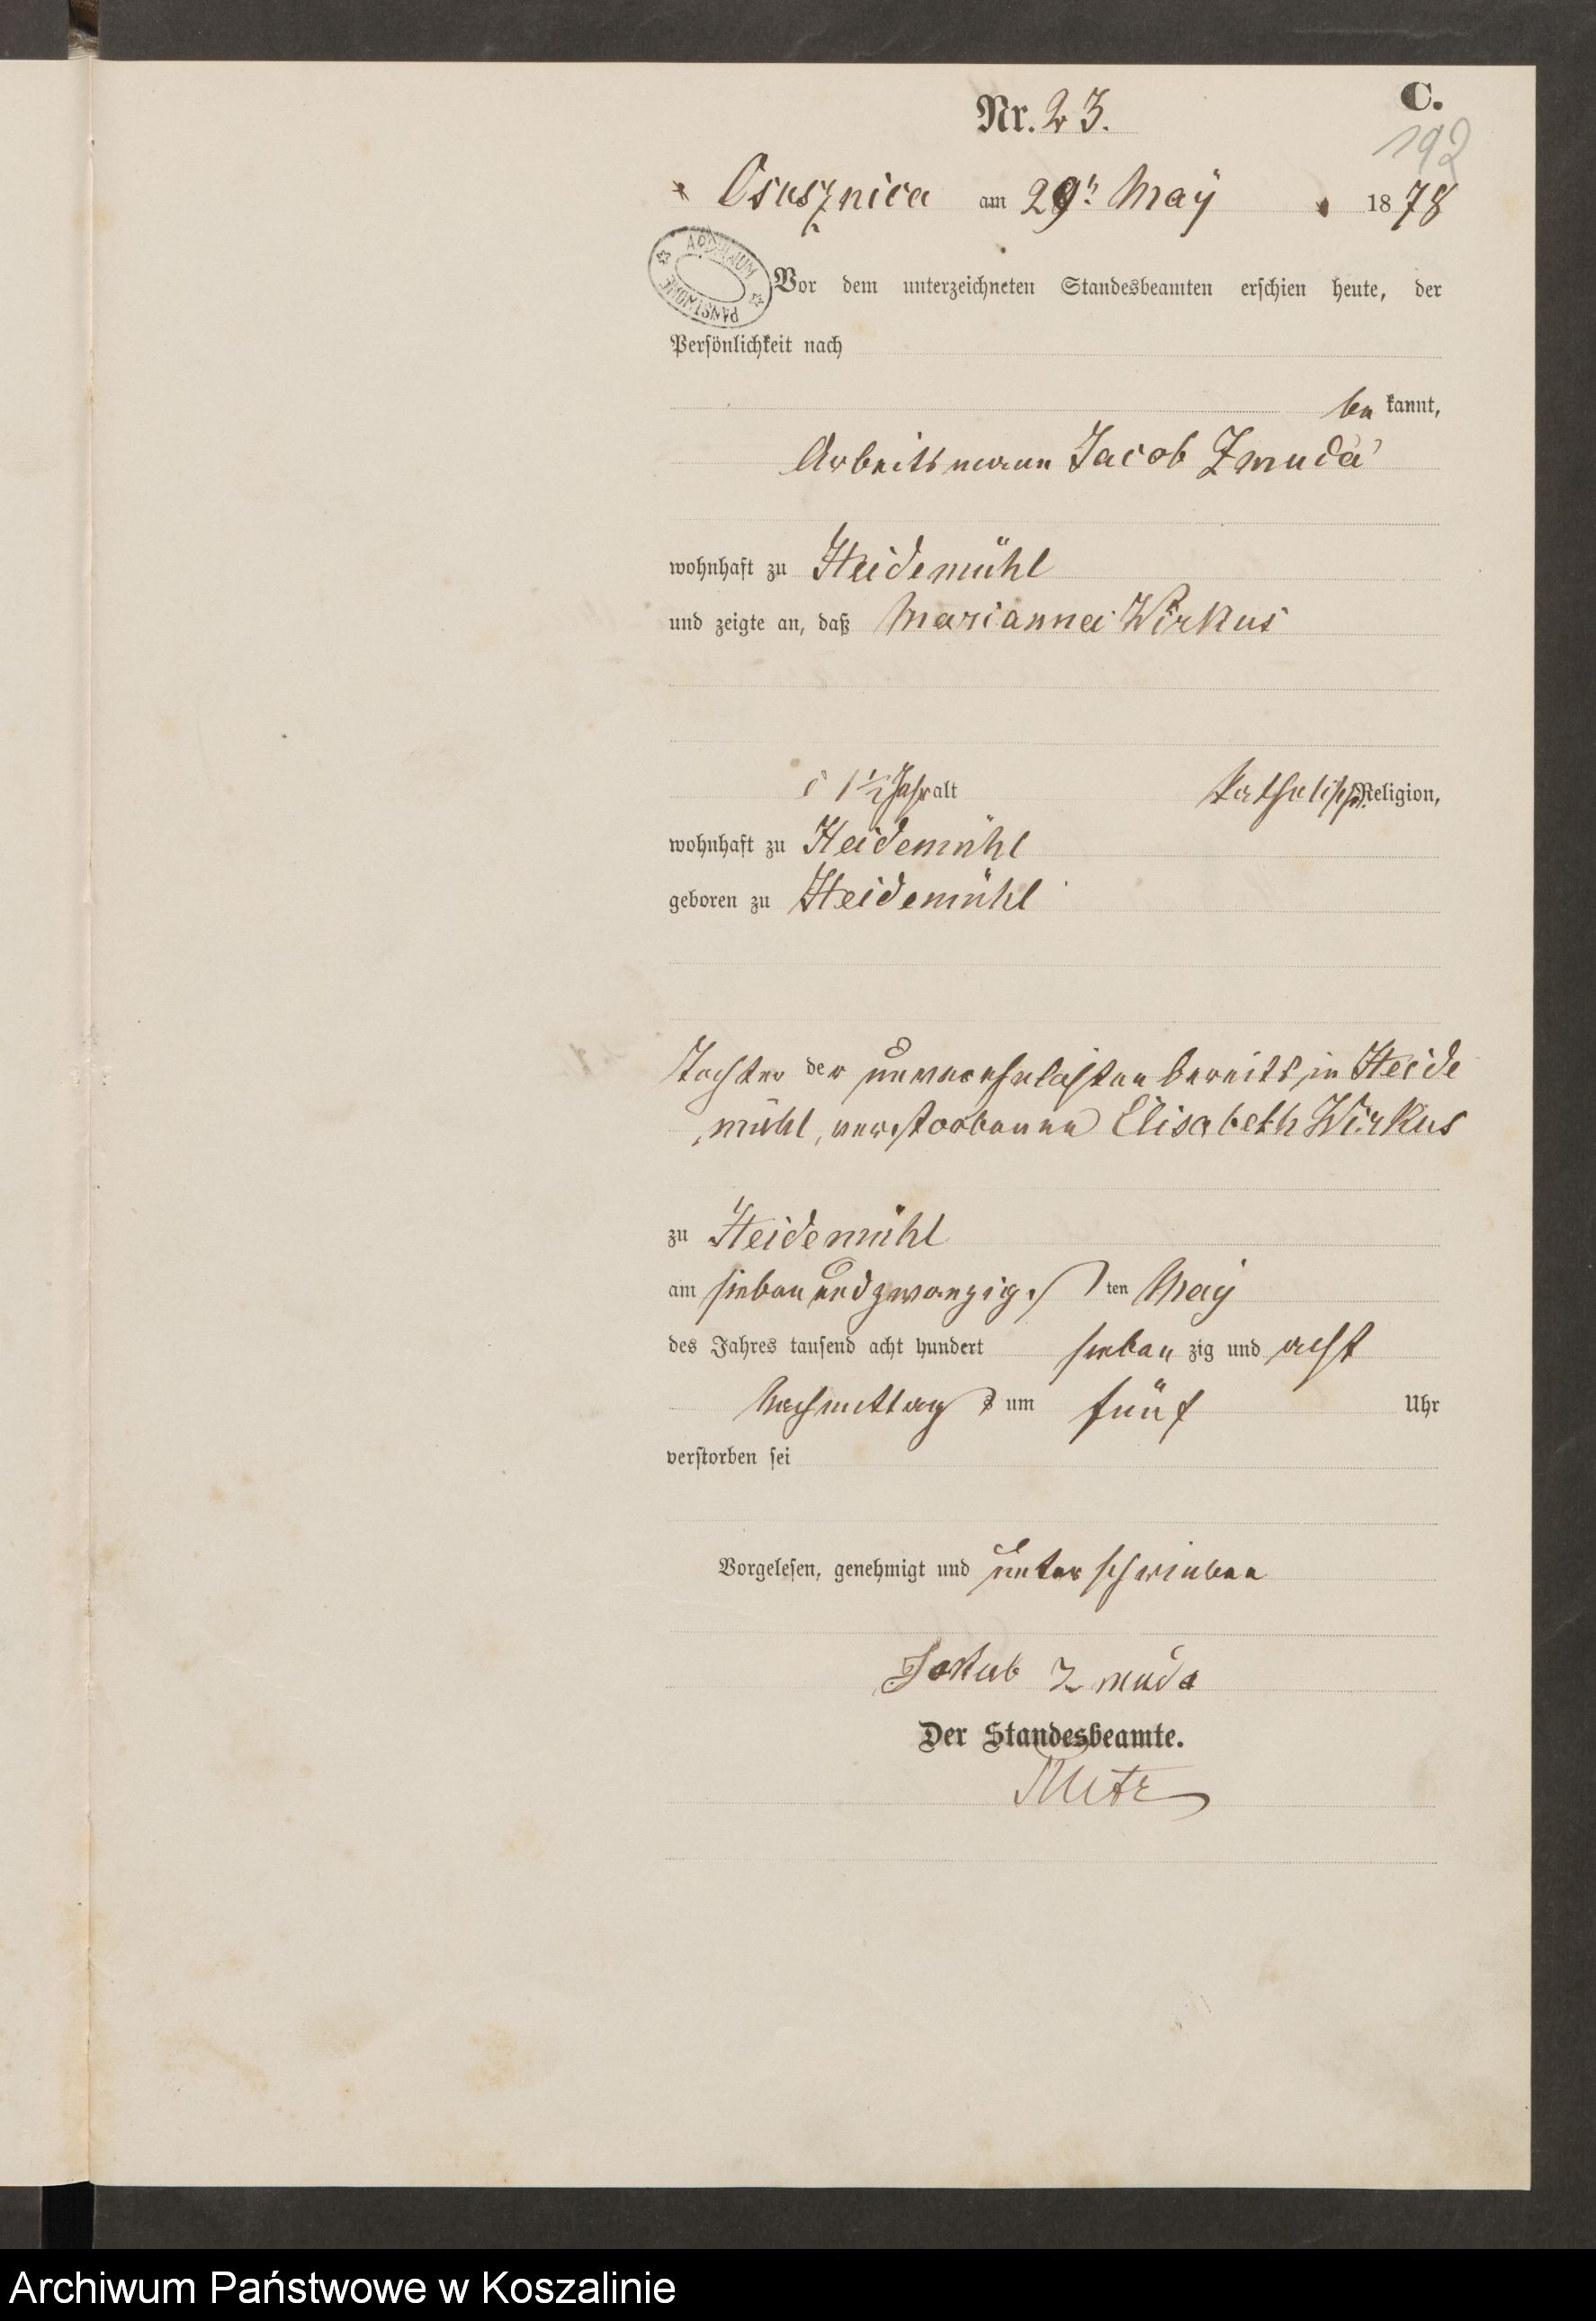 C.
Nr. 23.
192
Osusznica am 29t May 1878
ARCHIWUM PAŃSTWOWE
Vor dem unterzeichneten Standesbeamten erschien heute, der
Persönlichkeit nach
be kannt,
Arbeitsmann Jacob Zmuda
wohnhaft zu Heidemühl
und zeigte an, daß Marianna Wirkus
1 1/2 Jahr alt katholisch. Religion,
wohnhaft zu Heidemühl
geboren zu Heidemühl
Tochter der unverehelichten bereits in Heide
mühl, verstorbenen Elisabeth Wirkus
zu Heidemühl
am sieben und zwanzigs ten May
des Jahres tausend acht hundert sieben zig und acht
Nachmittag s um fünf Uhr
verstorben sei
Vorgelesen, genehmigt und unterschrieben
Jakub Zmuda
Der Standesbeamte.
Archiwum Państwowe w Koszalinie